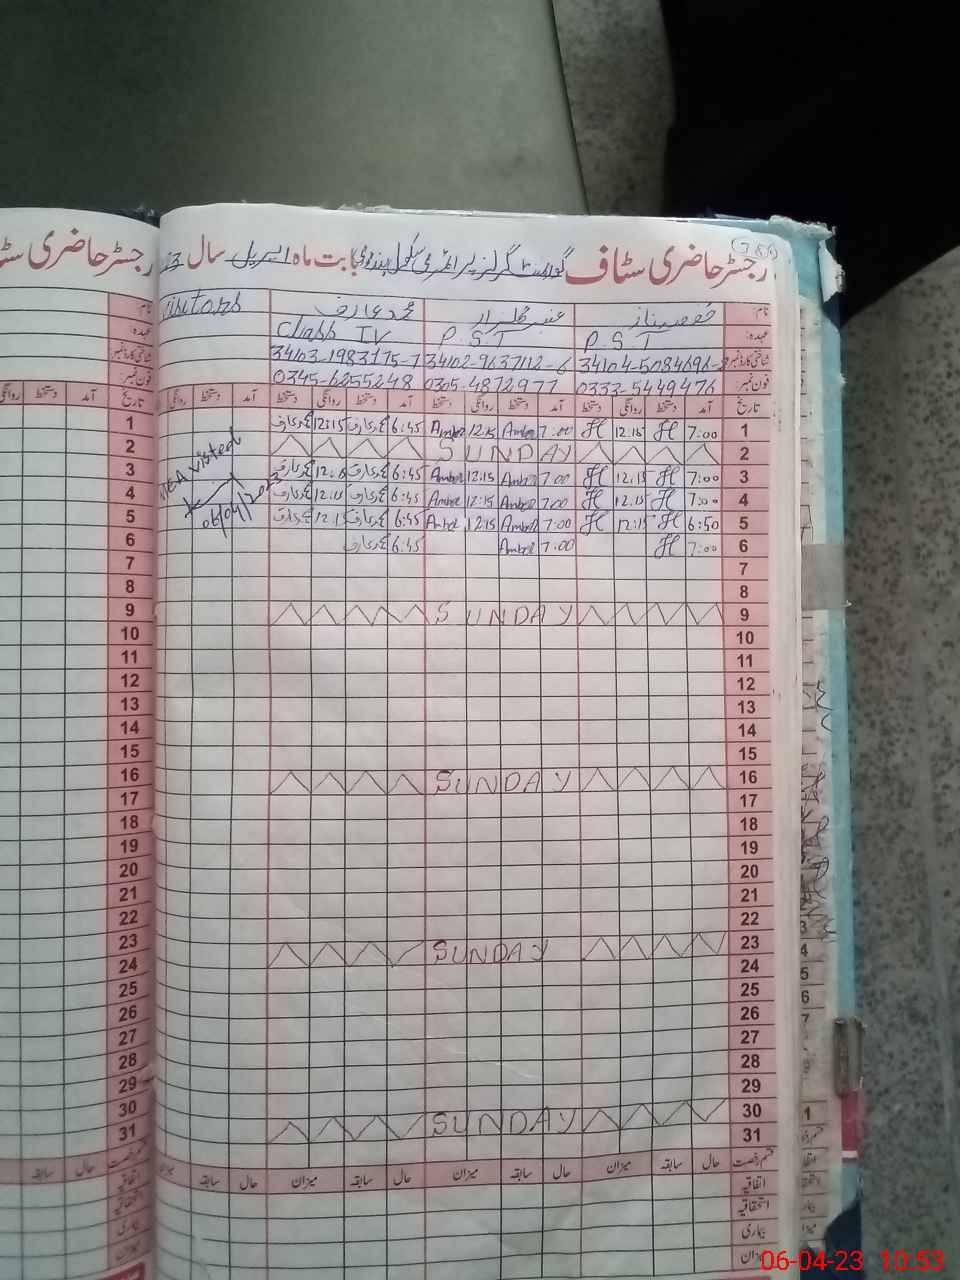 رجسٹر حاضری سٹاف گورنمنٹ گرلز پرائمری سکول بابت ماہ اپریل سال
رجسٹر حاضری
نام: عنبر گلزار محمد عارف Visitors
عہدہ: P.S.T P.S.T Class IV
شناختی کارڈ نمبر: 34102-9637112-6 34103-1983175-7
فون نمبر: 0333-5449476 0305-4872977 0345-6255248
تاریخ آمد دستخط روانگی دستخط آمد دستخط روانگی دستخط آمد دستخط روانگی دستخط آمد دستخط روانگی
1 7:00 H 12.15 H 7:00 Amber 12:15 Amber 6:45 محمد عارف 12:15 محمد عارف
2 SUNDAY
3 7:00 H 12:15 H 7:00 Amber 12:15 Amber 6:45 محمد عارف محمد عارف
4 7:00 H 12:15 H 7:00 Amber 12:15 Amber 6:45 محمد عارف محمد عارف
5 6:50 H 12:15 H 7:00 Amber 12:15 Amber 6:45 محمد عارف محمد عارف
6 7:00 H 7:00 Amber 6:45 محمد عارف
visited
06/04/2023
7
8
9 SUNDAY
10
11
12
13
14
15
16 SUNDAY
17
18
19
20
21
22
23 SUNDAY
24
25
26
27
28
29
30 SUNDAY
31
قسم رخصت حال سابقہ میزان حال سابقہ میزان حال سابقہ میزان حال سابقہ میزان
اتفاقیہ
استحقاقیہ
بیماری
میزان
06-04-23 10:53